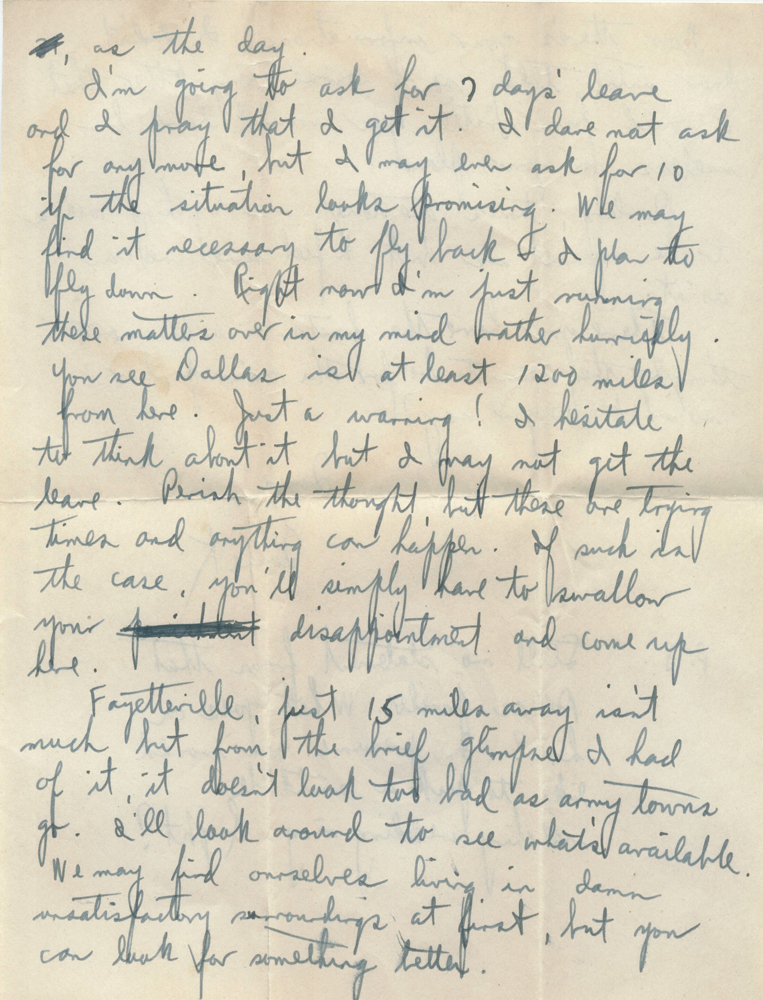 , as the day.
I'm going to ask for 7 days' leave
and I pray that I get it. I dare not ask
for any more, but I may even ask for 10
if the situation looks promising. We may
find it necessary to fly back & I plan to
fly down. Right now I'm just running
these matters over in my mind rather hurriedly.
You see Dallas is at least 1200 miles
from here. Just a warning! I hesitate
to think about it but I may not get the
leave. Perish the thought, but these are trying
times and anything can happen. If such is
the case, you'll simply have to swallow
your disappointment and come up
here.
Fayetteville, just 15 miles away isn't
much but from the brief glimpse I had
of it, it doesn't look too bad as army towns
go. I'll look around to see what's available.
We may find ourselves living in damn
unsatisfactory surroundings at first, but you
can look for something better.